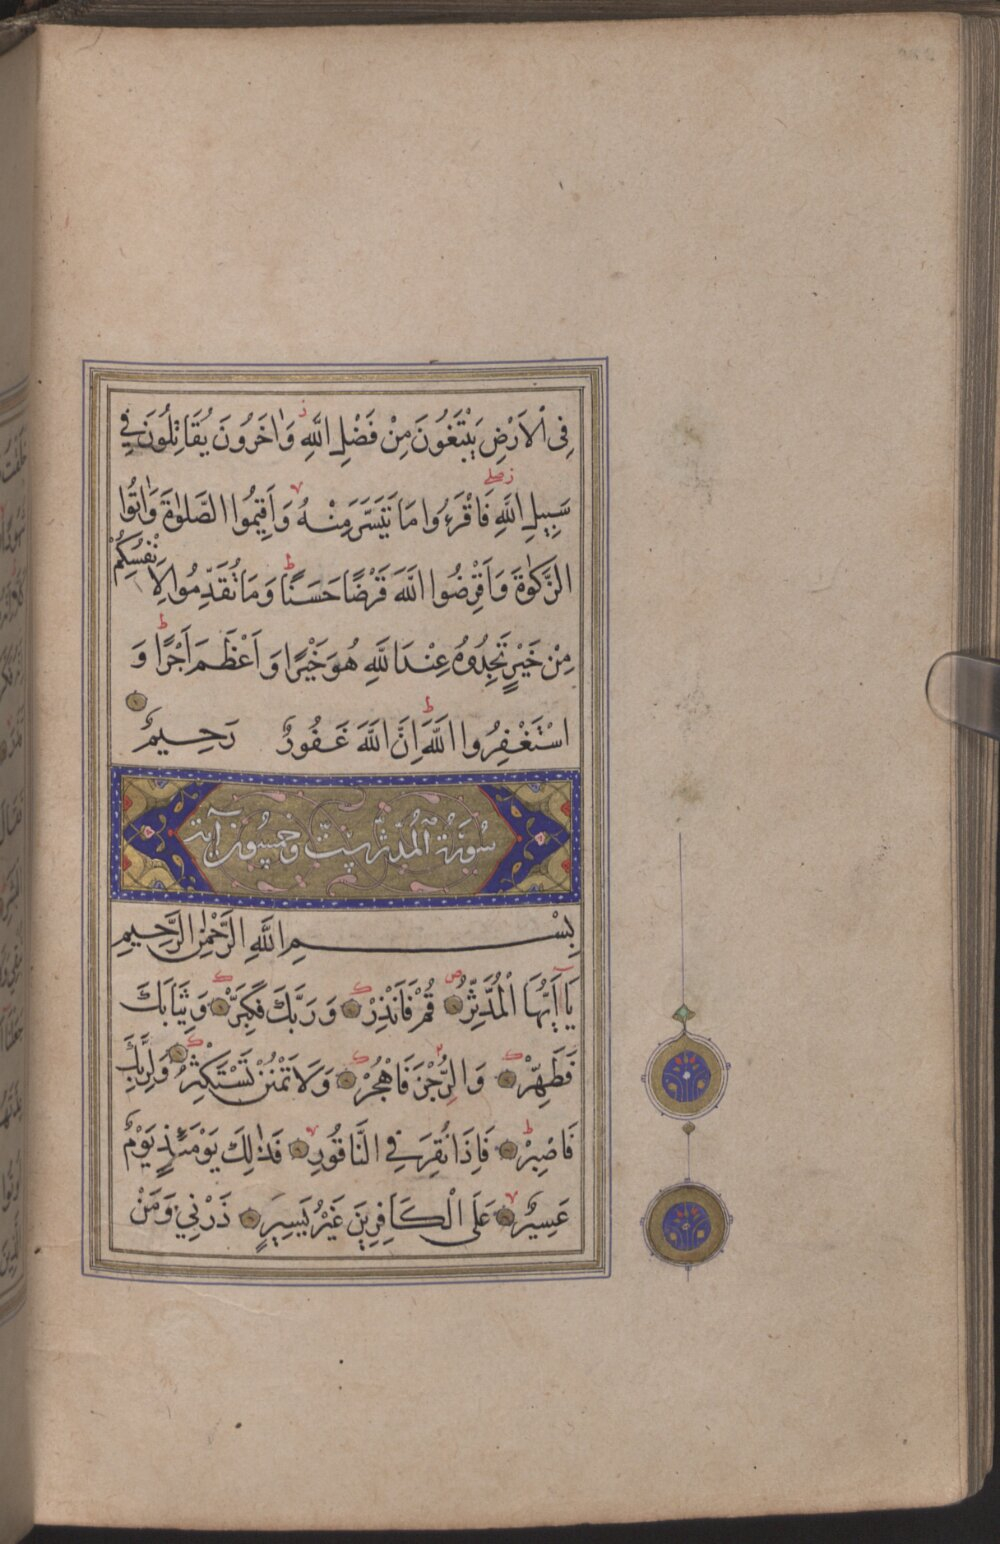 فِى الْاَرْضِ يَبْتَغُونَ مِنْ فَضْلِ اللّٰهِ وَاٰخَرُونَ يُقَاتِلُونَ فِي
سَبِيلِ اللّٰهِ فَاقْرَءُوا مَا تَيَسَّرَ مِنْهُ وَاَقِيمُوا الصَّلٰوةَ وَاٰتُوا
الزَّكٰوةَ وَاَقْرِضُوا اللّٰهَ قَرْضًا حَسَنًا وَمَا تُقَدِّمُوا لِاَنْفُسِكُمْ
مِنْ خَيْرٍ تَجِدُوهُ عِنْدَ اللّٰهِ هُوَ خَيْرًا وَاَعْظَمَ اَجْرًا وَ
اسْتَغْفِرُوا اللّٰهَ اِنَّ اللّٰهَ غَفُورٌ رَحِيمٌ
سُورَةُ الْمُدَّثِّر سِتّ وَخمسُون آية
بِسْمِ اللّٰهِ الرَّحْمٰنِ الرَّحِيمِ
يَا اَيُّهَا الْمُدَّثِّرُ قُمْ فَاَنْذِرْ وَرَبَّكَ فَكَبِّرْ وَثِيَابَكَ
فَطَهِّرْ وَالرُّجْزَ فَاهْجُرْ وَلَا تَمْنُنْ تَسْتَكْثِرُ وَلِرَبِّكَ
فَاصْبِرْ فَاِذَا نُقِرَ فِي النَّاقُورِ فَذٰلِكَ يَوْمَئِذٍ يَوْمٌ
عَسِيرٌ عَلَى الْكَافِرِينَ غَيْرُ يَسِيرٍ ذَرْنِي وَمَنْ